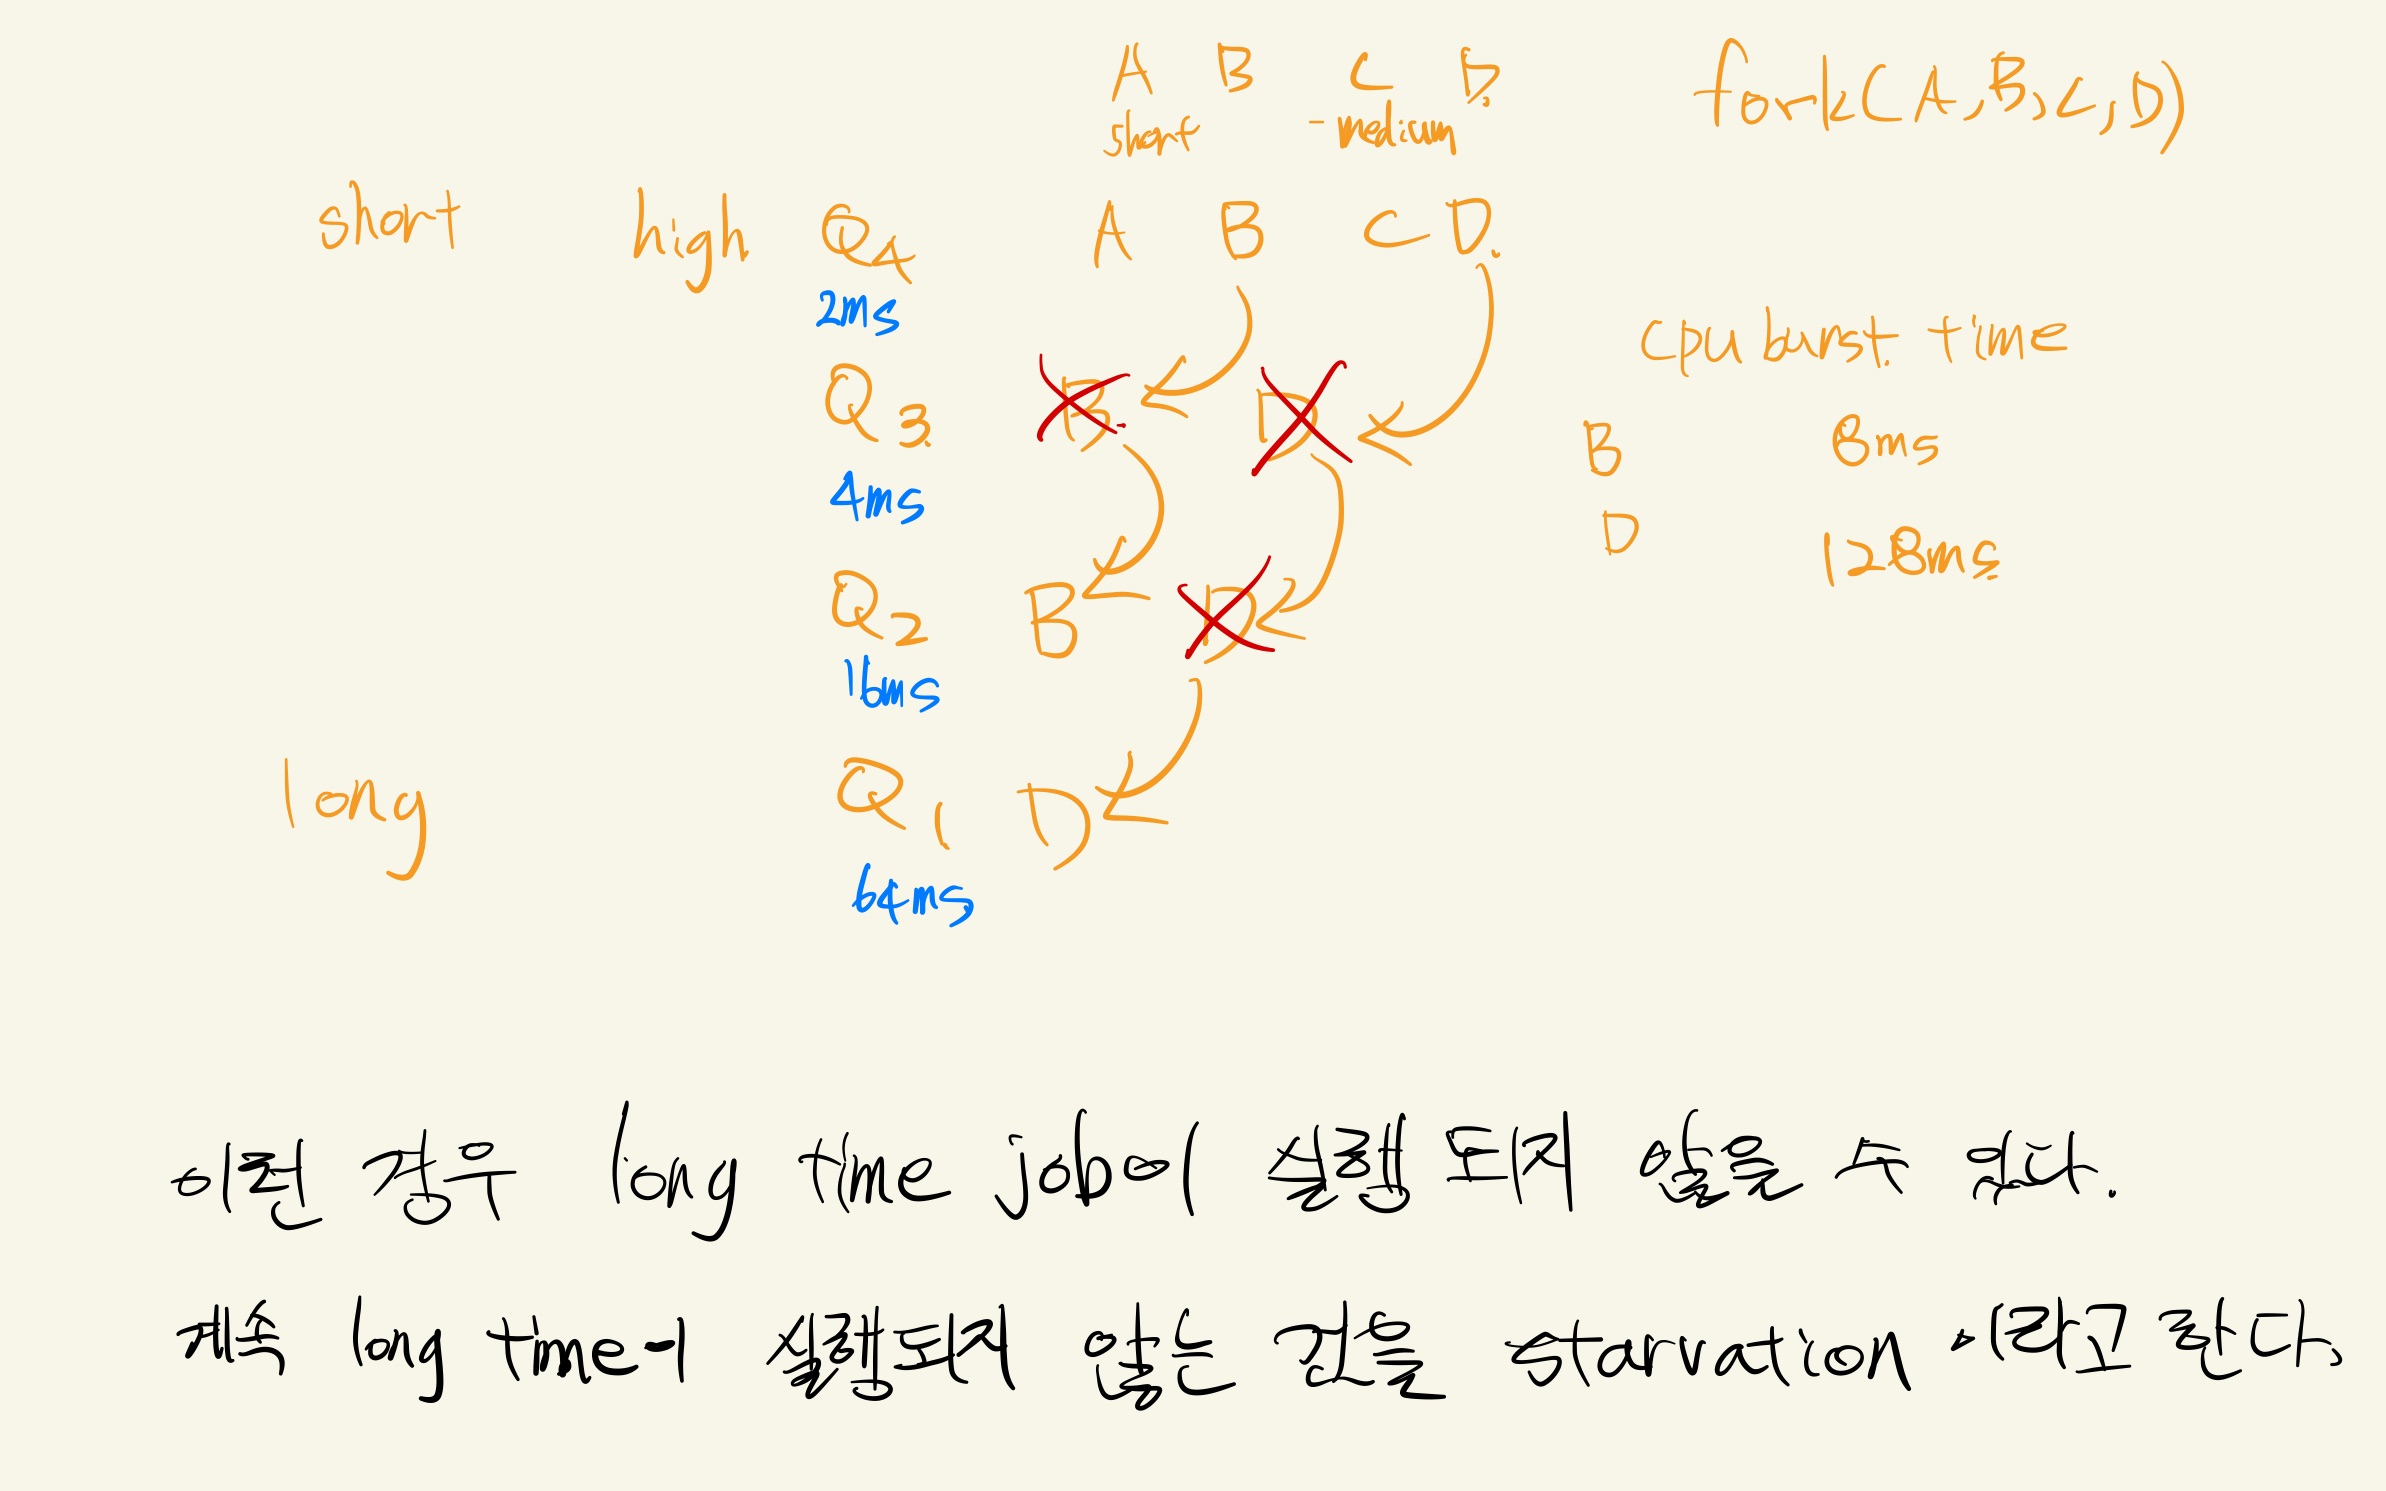 A B C D.
fork(A,B,C,D)
short - medium
short high Q4 A B C D.
2ms
cpu burst. time
Q3. B. D
B 8ms
4ms
D 128ms
Q2 B D
16ms
long Q1 D
64ms
이런 경우 long time job이 실행 되지 않을 수 있다.
계속 long time이 실행되지 않는 것을 starvation 이라고 한다.